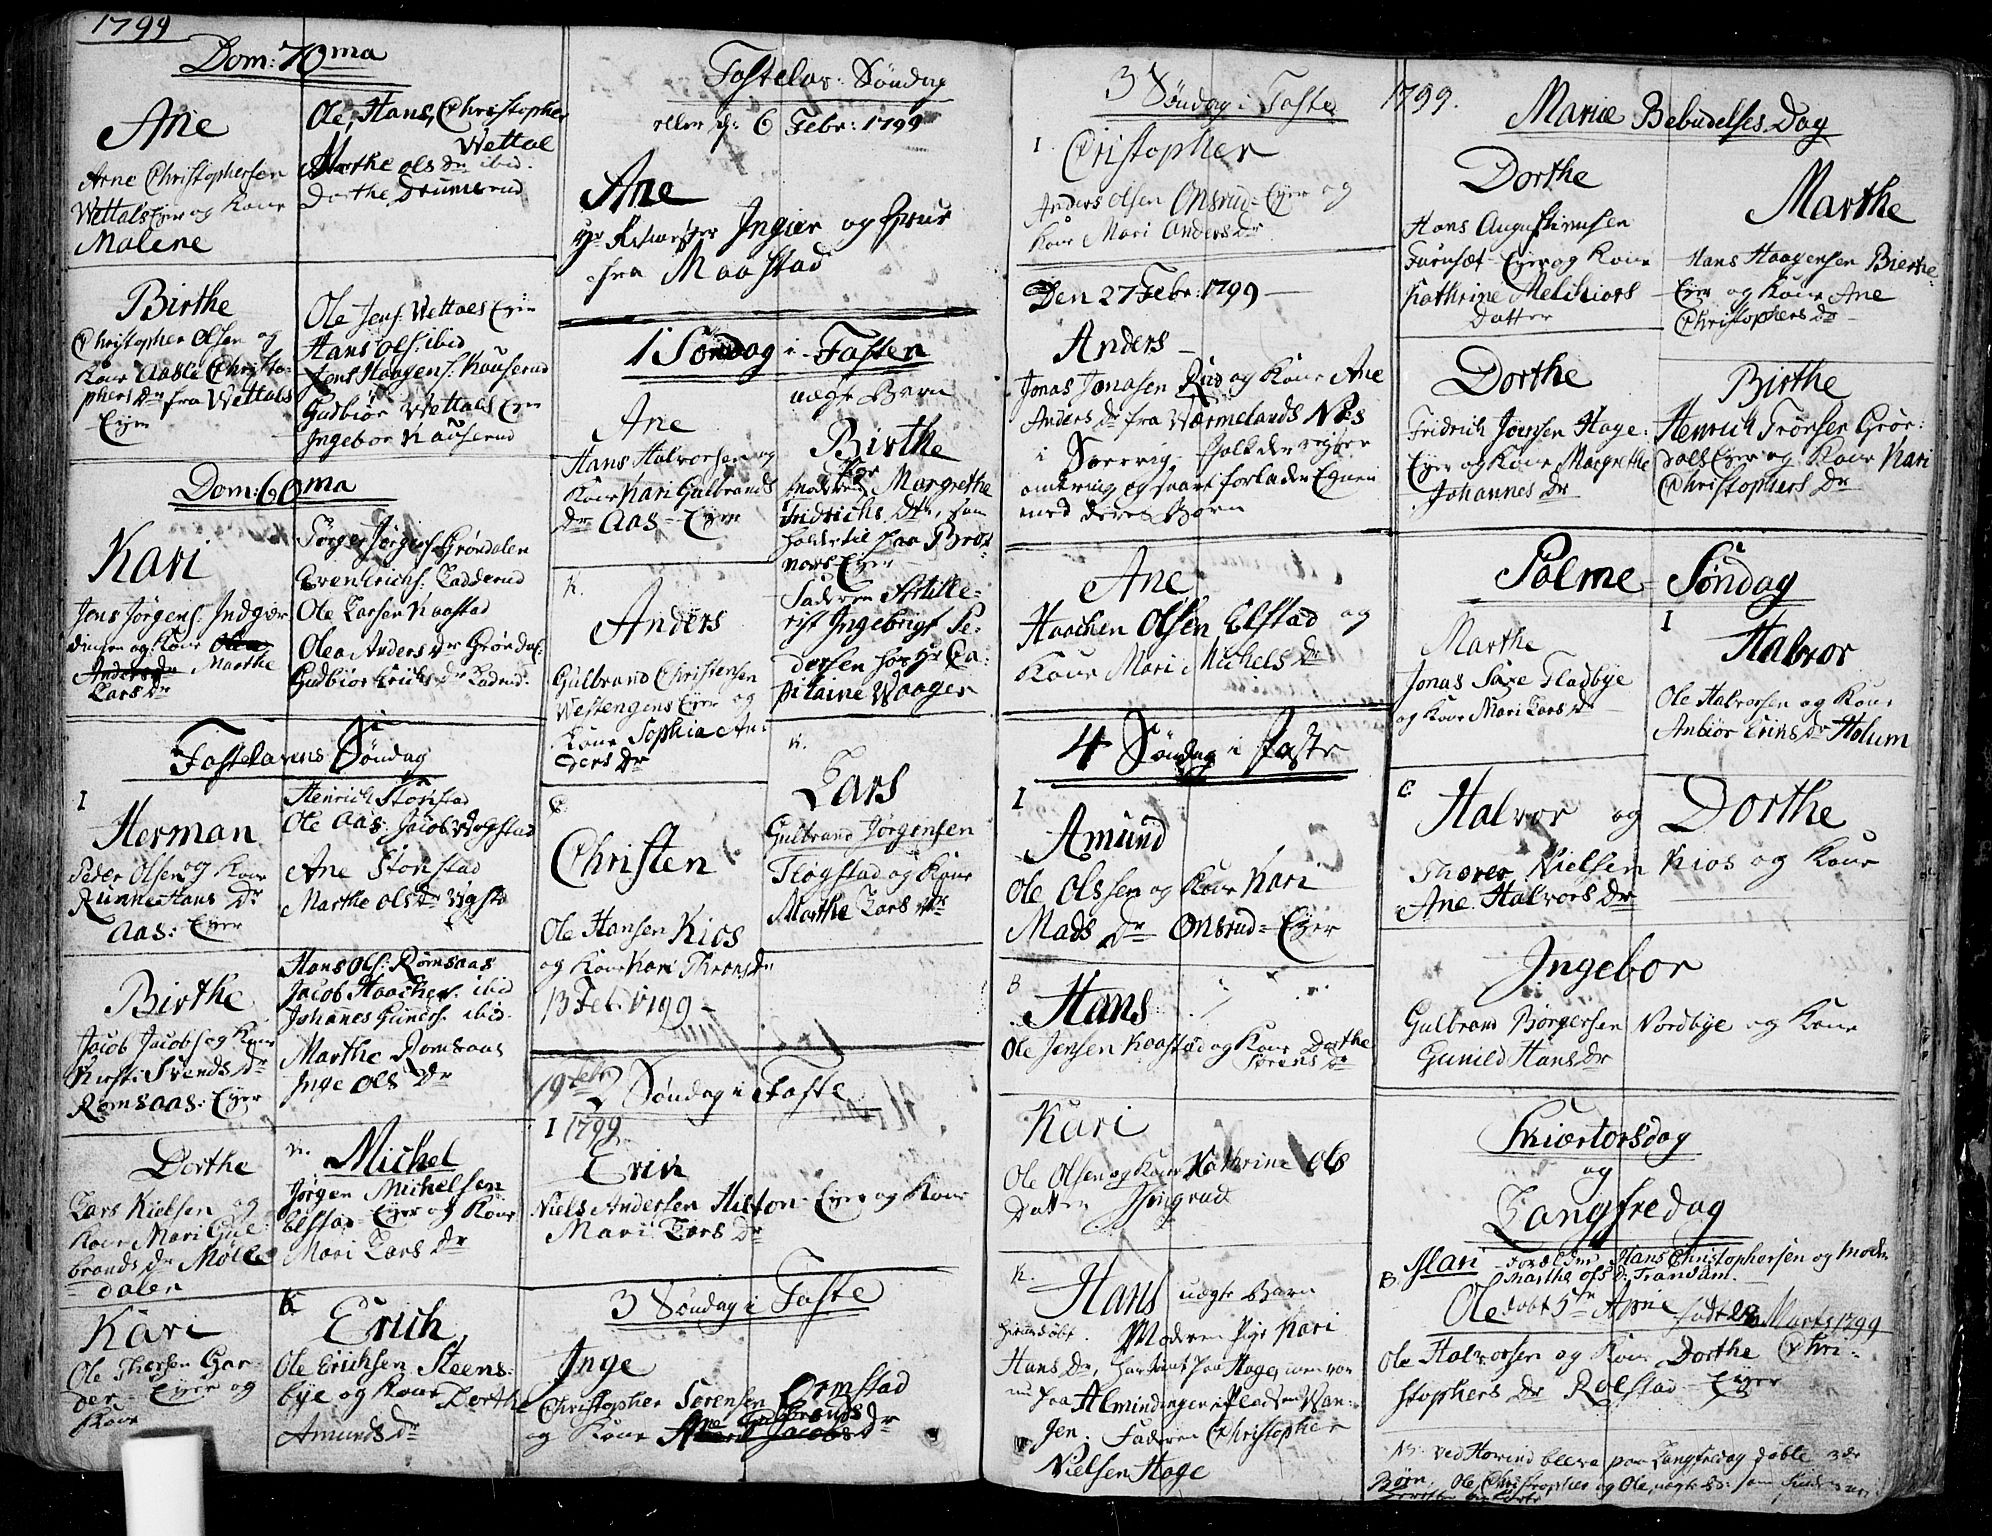 1799
Dom: 70ma
Ane
Arne Christophersen
Wettals Eyer og Kone
Malene
Ole, Hans, Christopher
Wettal
Marthe Ols Dr ibid:
Dorthe Drumerud
Birthe
Christopher Olsen og
Kone Aasle Christo-
phers Dr fra Wettals
Eyer
Ole Jens: Wettals Eyer
Hans Ols: ibid
Jens Haagens: Kauserud
Gudbiør Wettals Eyer
Ingebor Kauserud
Dom: 60ma
Kari
Jens Jørgens: Indgier
dingen og Kone Olea
Anders Dr Marthe
Lars Dr
Jørger Jørgens: Grøndalen
Even Erichs: Ladderud
Ole Larsen Kaastad
Olea Anders Dr Grøndal:
Gudbiør Erichs Dr Laderud
Fastelavens Søndag
I
Herman
Peder Olsen og Kone
Runne Hans Dr
Aas: Eyer
Henrich Storstad
Ole Aas: Jacob Wogstad
Ane Storstad
Marthe Ols Dr Wogsta
Birthe
Jacob Jacobs: og Kone
Kirsti Svends Dr
Romsaas: Eyer
Hans Ols: Romsaas
Jacob Haachens: ibid
Johanes Guners: ibid
Marthe Romsaas
Inge Ols Dr
Dorthe
Lars Nielsen og
Kone Mari Gul-
brands Dr Mølle
dalen
K.
Michel
Jørgen Michelsen
Elstad Eyer og Kone
Mari Lars Dr
Kari
Ole Thorsen Gar-
der Eyer og
Kone
K
Erich
Ole Erichsen Steens-
bye og Kone Dorthe
Amunds Dr
Fastelav: Søndag
eller d: 6 Febr: 1799
Ane
Hr Ritmester Ingier og Frue
fra Maastad
1 Søndag i Fasten
Ane
Hans Halvorsen og
Kone Kari Gulbrands
Dr Aas Eyer
uægte Barn
Birthe
Moderen Margrethe
Fridrichs Dtr, som
holder til paa Brot-
nors Eyer
Faderen Artille-
rist Ingebrigt Pe-
dersen hos Hr Ca-
pitaine Waager
K.
Anders
Gulbrand Christensen
Westengens Eyer og
Kone Sophia An-
ders Dr
K.
Lars
Gulbrand Jørgensen
Fløgstad og Kone
Marthe Lars Dr
C
Christen
Ole Hansen Kios
og Kone Kari Throns Dr
13 Feb: 1799
19 Febr 2 Søndag i Faste
I 1799
Erik
Niels Andersen Hilton Eyer og Kone
Mari Lars Dr
3 Søndag i Faste
Inge
Christopher Sørensen Ormstad
og Kone Ane Gulbrands Dr
3 Søndag i Faste
I
Christopher
Anders Olsen Onsrud Eyer og
Kone Mari Anders Dr
Den 27 Febr: 1799
Anders
Jonas Jonasen Rud og Kone Ane
Anders Dr fra Wærmelands Næs
i Sverrig
omkring og snart forlader Egnen
med deres Barn
Ane
Haachen Olsen Elstad og
Kone Mari Michels Dr
4 Søndag i Faste
I
Amund
Ole Olssen og Kone Kari
Mads Dr Onsrud Eyer
B
Hans
Ole Jensen Kaastad og Kone Dorthe
Sørens Dr
Kari
Ole Olsen og Kone Kathrine Ols
Datter
K.
Hans uægte Barn
hiemdøbt. Moderen Pige Kari
Hans Dr, har tient paa Hage, men var
nu paa Almindingen i Pladsen Van-
gen. Faderen Christopher
Nielsen Hage
1799.
Mariæ Bebudelses Dag
Dorthe
Hans Augustinusen
Furuset Eyer og Kone
Kathrine Melchiors
Datter
Marthe
Hans Haagensen Bierke
Eyer og Kone Ane
Christophers Dr
Dorthe
Fridrich Jensen Hage:
Eyer og Kone Margrethe
Johannes Dr
Birthe
Henrich Trorsen Grør:
dals Eyer og Kone Kari
Christophers Dr
Palme Søndag
Marthe
Jonas Fladbye
og Kone Mari Lars Dr
I
Halvor
Ole Halvorsen og Kone
Anbiør Eriks Dr Holum
C
Halvor og Dorthe
Thorer Nielsen Kios og Kone
Ane Halvors Dr
Ingebor
Gulbrand Børgersen Nordbye og Kone
Gunild Hans Dr
Skiertorsdag
og
Langfredag
B. Mari Hans Christophersen og Moder
Marthe Ols Dr Transum
Ole døbt 5te April født 28 Marts 1799
Ole Halvorsen og Kone Dorthe Chri-
stophers Dr Rolstad Eyer
NB: ved Horind bleve paa Langfredag døbte 3de
Børn. Ole, Christopher og Ole, uægte